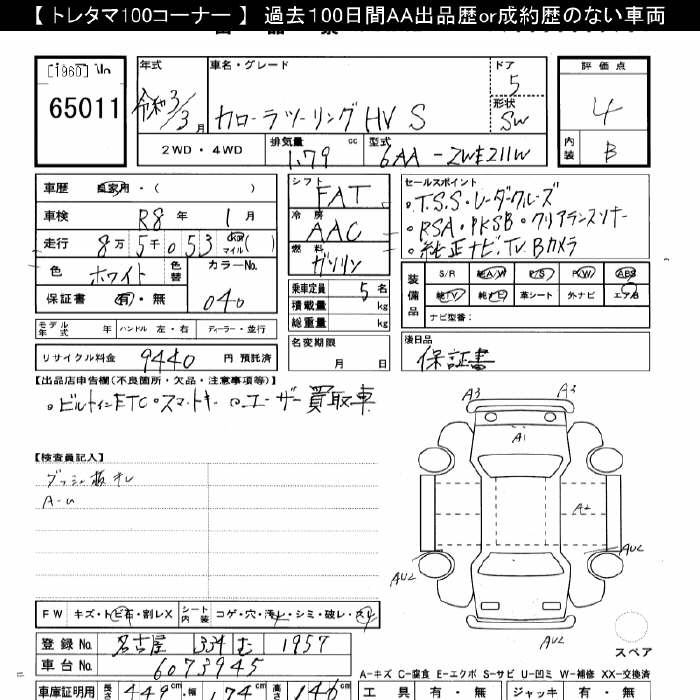 【 トレタマ100コーナー 】 過去100日間AA出品歴or成約歴のない車両
65011
年式 車名・グレード ドア 評価点
令和3/3月 カローラツーリング HV S 5 4
形状 SW
2WD・4WD 排気量 1.79 cc 型式 6AA-ZWE211W 内装 B
車歴 自家用・( )
車検 R8年 1月
走行 8万5千053 km マイル ( )
色 ホワイト 色替 カラーNo. 040
保証書 有・無
シフト FAT
冷房 AAC
燃料 ガソリン
乗車定員 5 名
積載量 kg
総重量 kg
セールスポイント
・T.S.S・レーダークルーズ
・RSA・PKSB・クリアランスソナー
・純正ナビ.TV.Bカメラ
装備品 S/R 純A/W P/S P/W ABS
純TV 純ナビ 革シート 外ナビ エアB
ナビ型番:
モデル年式 年 ハンドル 左・右 ディーラー・並行
リサイクル料金 9440 円 預託済
名変期限 月 日
後日品
保証書
【出品店申告欄(不良箇所・欠品・注意事項等)】
・ビルトインETC・スマートキー ・ユーザー買取車
【検査員記入】
A-U
A3 A3
A1
A2
AU2 AU2
AU2
スペア
FW キズ・トビ石・割レX シート内装 コゲ・穴・汚レ・シミ・破レ・スレ
登録No. 名古屋 334 む 1957
車台No. 6073945
A-キズ C-腐食 E-エクボ S-サビ U-凹ミ W-補修 XX-交換済
車庫証明用 長さ 449 cm 幅 174 cm 高さ 146 cm
工具 有・無 ジャッキ 有・無